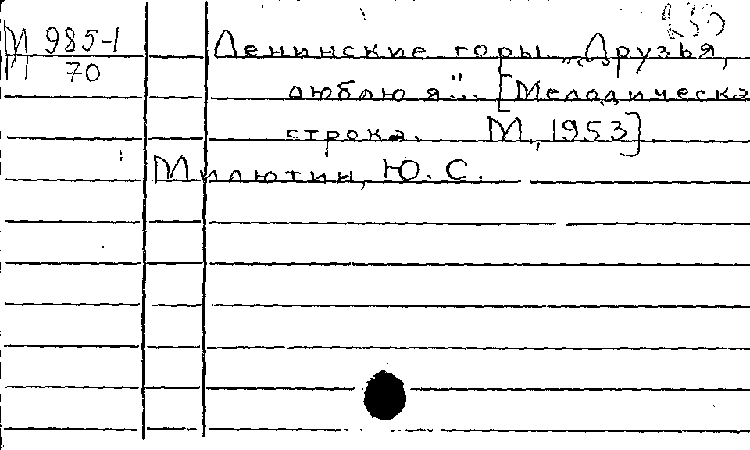 М 985-1
70
Ленинские горы. „Друзья,
люблю я"... [Мелодическа
строка. М., 1953]
Милютин, Ю. С.